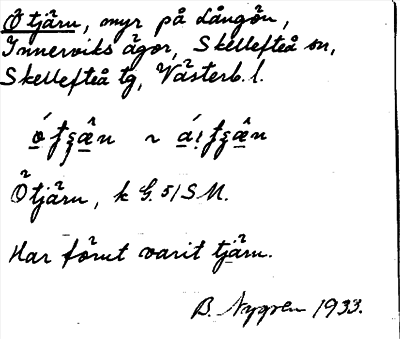 Ötjärn, myr på Långön,
Innerviks ägor, Skellefteå sn,
Skellefteå tg, Västerb. l.
Ötjärn, k G. 51 S M.
Har förut varit tjärn.
B. Nygren 1933.